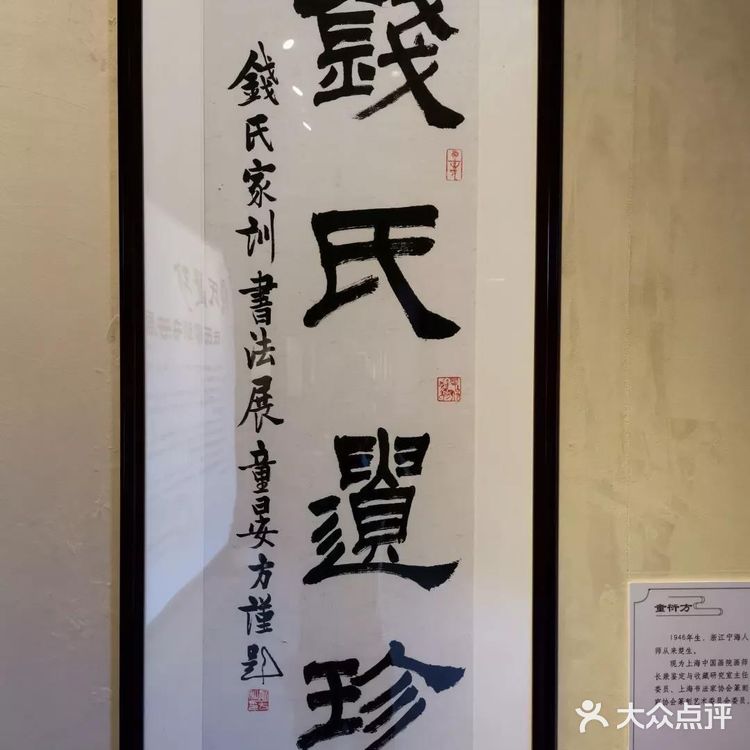 錢氏遺珍
錢氏家训書法展童晏方謹題
童衍方
1946年生、浙江宁海人
师从来楚生。
现为上海中国画院画师
长兼鉴定与收藏研究室主任
委员、上海书法家协会篆刻
家协会篆刻艺术委员会委员、
大众点评